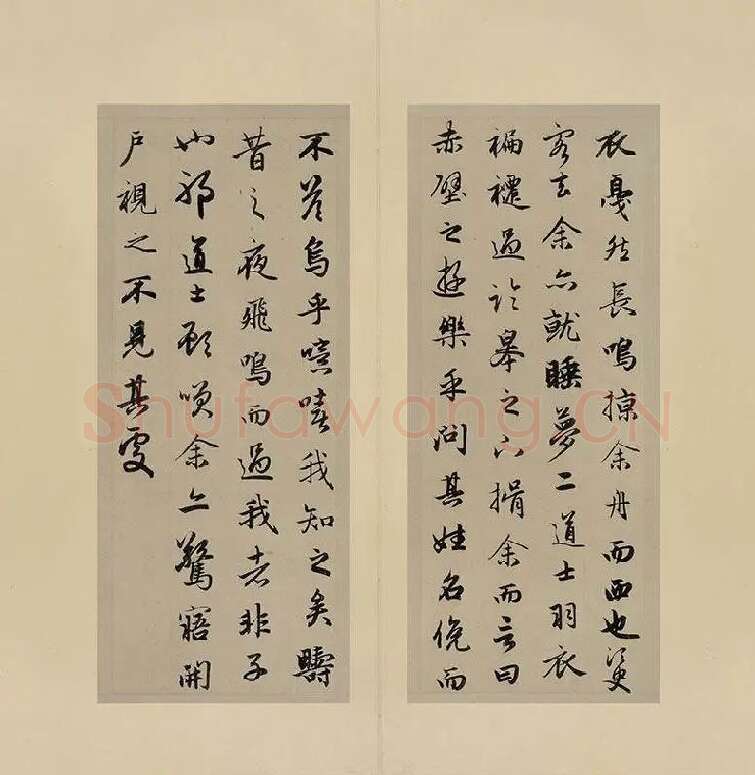 衣戛然長鳴掠余舟而西也須臾
客去余亦就睡夢二道士羽衣
褊褼過臨皋之下揖余而言曰
赤壁之遊樂乎問其姓名俛而
不答烏乎噫嘻我知之矣疇
昔之夜飛鳴而過我者非子
也邪道士顧笑余亦驚寤開
戶視之不見其處
Shufawang.CN